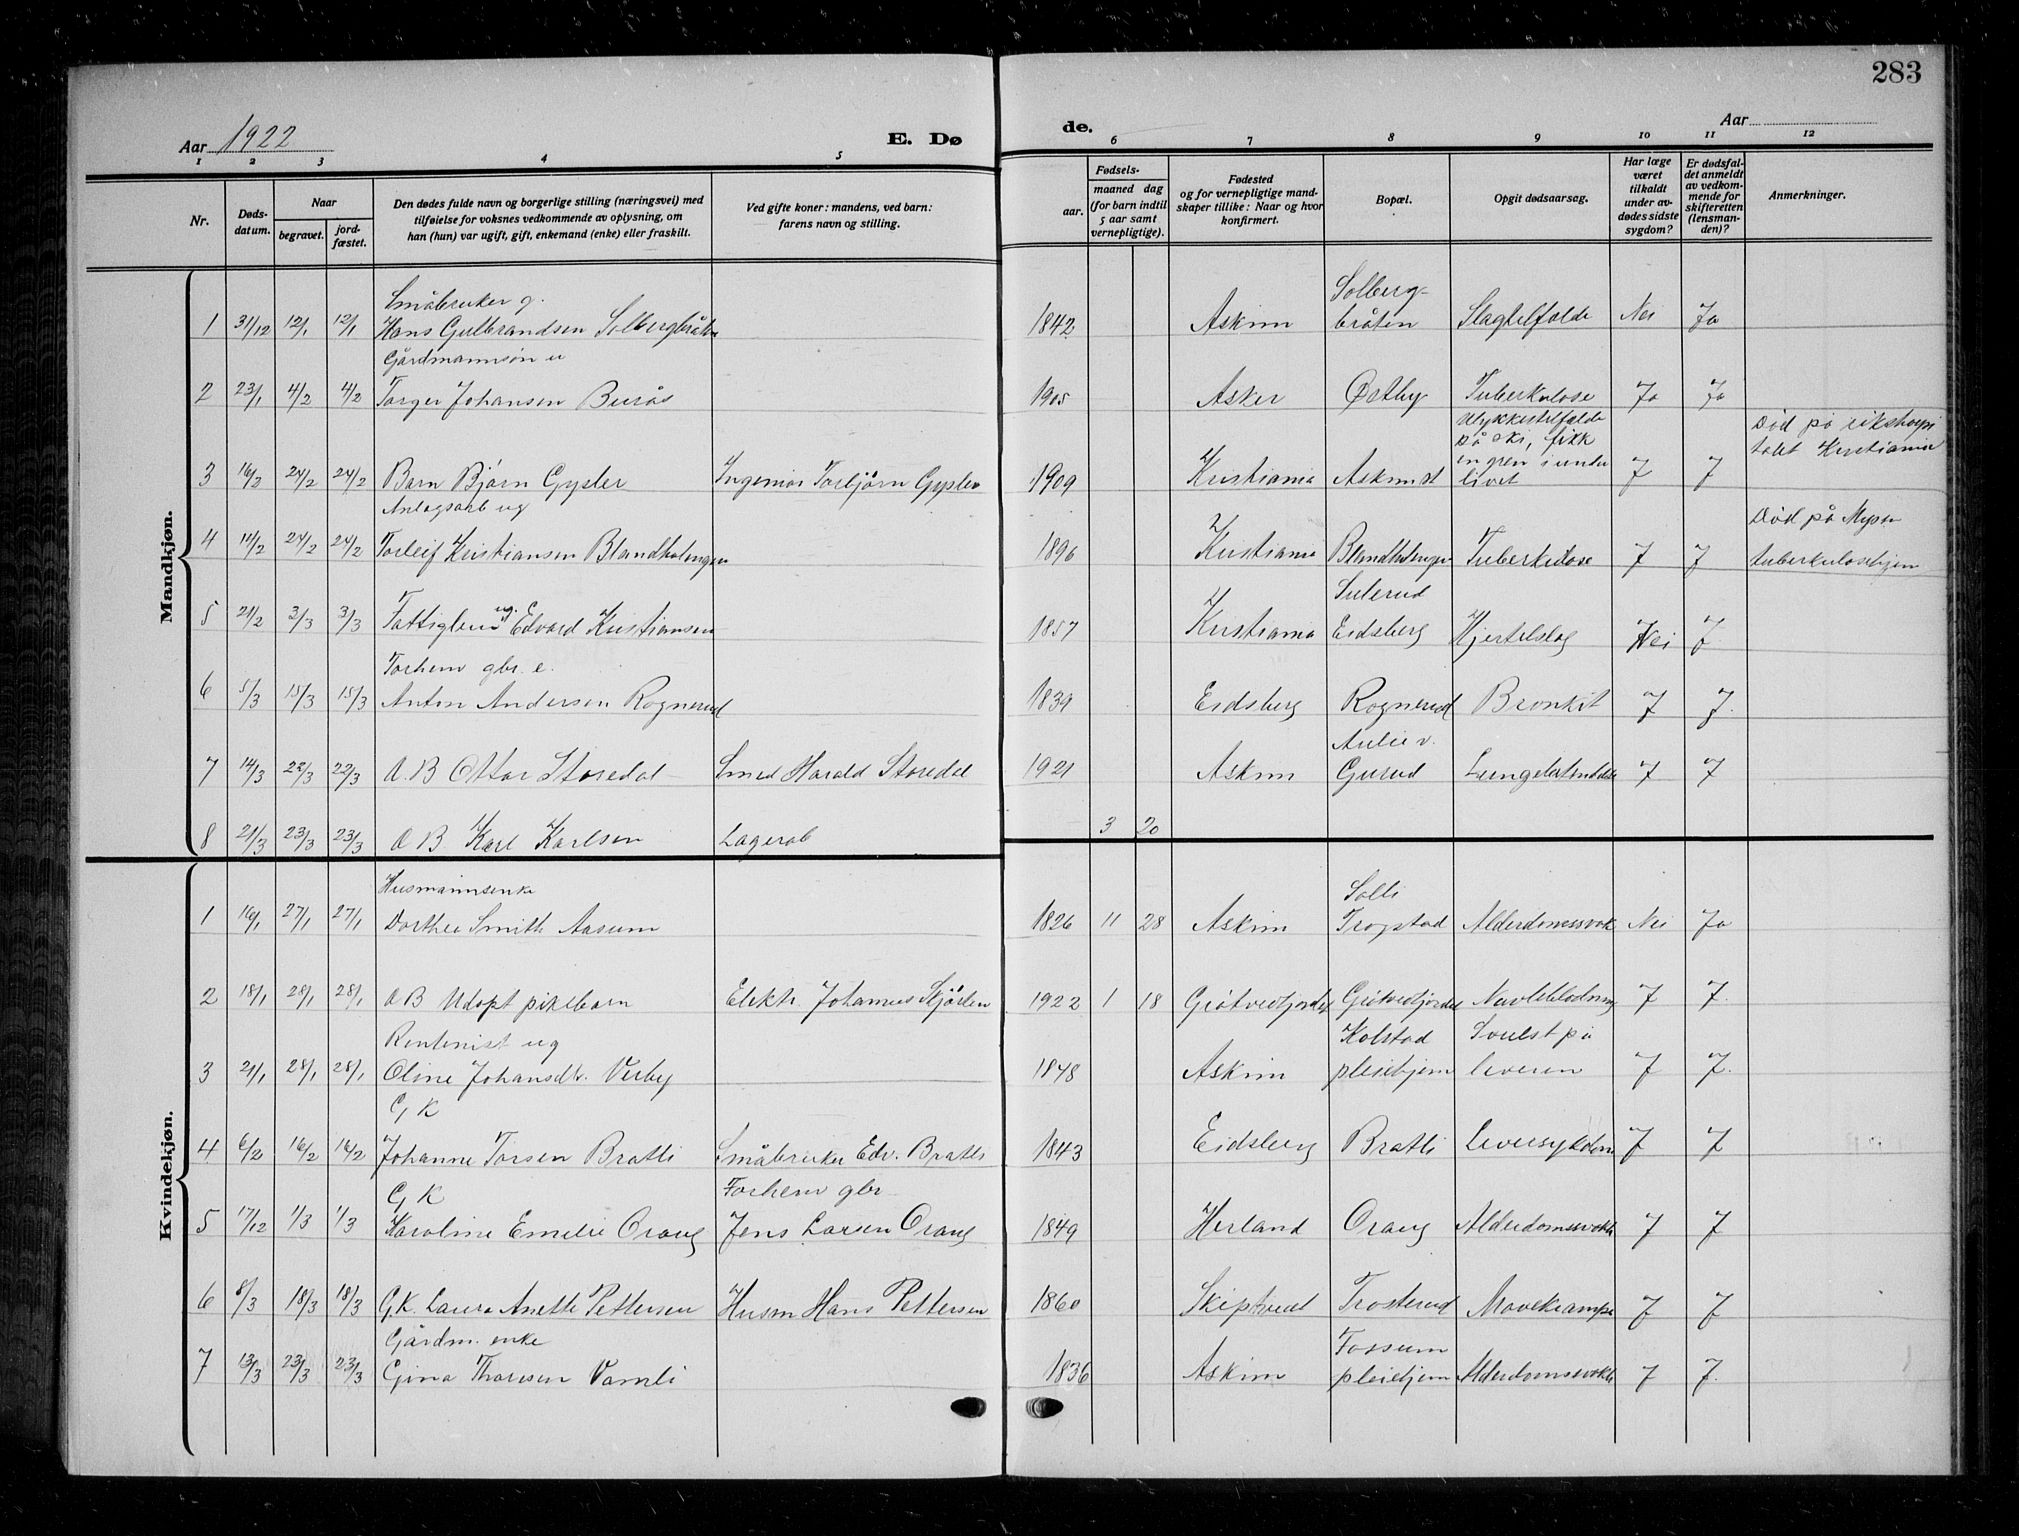 283
Aar 1922
E. Dø
de.
Aar
1 2 3 4 5
6 7 8 9 10 11 12
Nr.
Døds-
datum.
Naar
begravet.
jord-
fæstet.
Den dødes fulde navn og borgerlige stilling (næringsvei) med
tilføielse for voksnes vedkommende av oplysning, om
han (hun) var ugift, gift, enkemand (enke) eller fraskilt.
Ved gifte koner: mandens, ved barn:
farens navn og stilling.
Fødsels-
aar.
maaned dag
(for barn indtil
5 aar samt
vernepligtige).
Fødested
og for vernepligtige mand-
skaper tillike: Naar og hvor
konfirmert.
Bopæl.
Opgit dødsaarsag.
Har læge
været
tilkaldt
under av-
dødes sidste
sygdom?
Er dødsfal-
det anmeldt
av vedkom-
mende for
skifteretten
(lensman-
den)?
Anmerkninger.
Mandkjøn.
Småbruker g.
1 31/12 12/1 12/1 Hans Gulbrandsen Solbergbråten
1842 Askim Solberg-
bråten Slagtilfælde Nei Ja
Gårdmannsøn u
2 23/1 4/2 4/2 Torger Johansen Burås
1905 Asker Østby Tuberkulose Ja Ja
3 16/2 24/2 24/2 Barn Bjørn Gysler Ingeniør Torbjørn Gysler
1909 Kristiania Askim st
Ulykkestilfælde
på ski, fikk
en gren i under
livet
J J
Død på rikshospi
talet Kristiania
Anlagsarb ug
4 14/2 24/2 24/2 Torleif Kristiansen Blandholmgen
1896 Kristiania Tuberkulose J J
Død på Mysen
tuberkulosehjem
5 21/2 3/3 3/3 Fattiglem ug. Edvard Kristiansen
1857 Kristiania Sulerud
Eidsberg Hjerteslag Nei J
Forhenv gbr. e.
6 5/3 15/3 15/3 Anton Andersen Rognerud
1839 Eidsberg Rognerud Bronkit J J.
7 14/3 23/3 22/3 A.B Ottar Storedal Smed Harald Storedal
1921 Askim Gurud J J
8 21/3 23/3 23/3 A B Karl Karlsen Lagerarb
3 20
Kvindekjøn.
Husmannsenke
1 16/1 27/1 27/1 Dorthea Smith Aasum
1826 11 28 Askim Solli
Trøgstad Alderdomssvak Nei Ja
2 18/1 28/1 28/1 A B Udøpt pikebarn Elektr. Johannes
1922 1 18 J J.
Rentenist ug
3 21/1 28/1 28/1 Oline Johansdtr. Verby
1848 Askim Kolstad
pleiehjem Svulst på
leveren J J.
G K
4 6/2 16/2 16/2 Johanne Torsen Bratli Småbruker Edv. Bratli
1843 Eidsberg Bratli Leversykdom J J
G K
5 17/12 1/3 1/3 Karoline Emelie Oraug Forhenv gbr
Jens Larsen Oraug
1849 Herland Oraug Alderdomssvakh J J
6 8/3 18/3 18/3 G.K. Laura Anette Pettersen Husm Hans Pettersen
1860 Skiptvedt Trosterud Mavekrampe J J
Gårdm. enke
7 13/3 23/3 23/3 Gina Thoresen Vamli
1836 Askim Fossum
pleiehjem Alderdomssvakh J J.